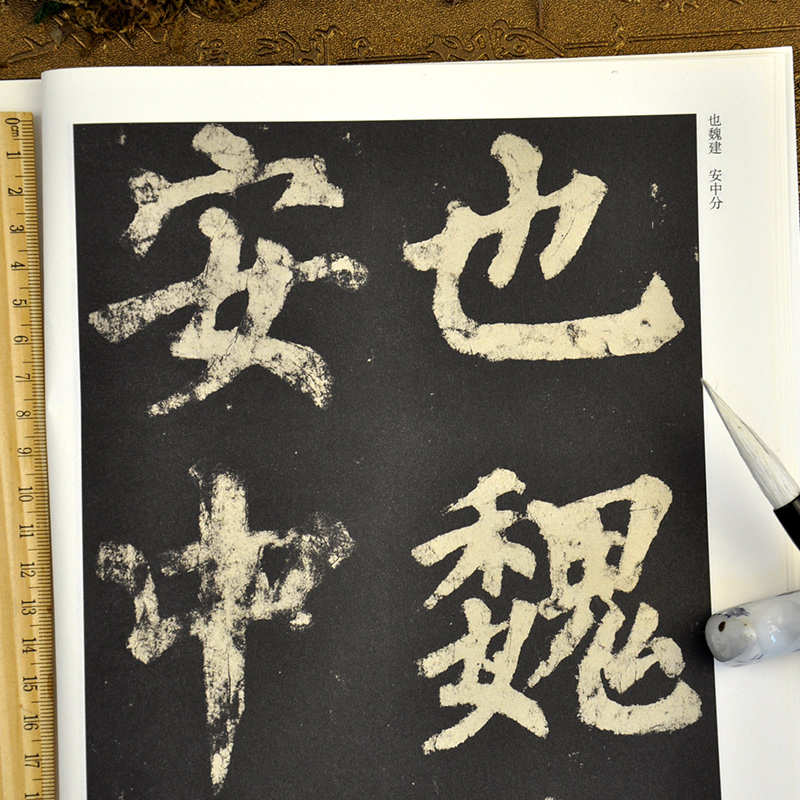 也魏
安中
也魏建 安中分
0cm 1 2 3 4 5 6 7 8 9 10 11 12 13 14 15 16 17